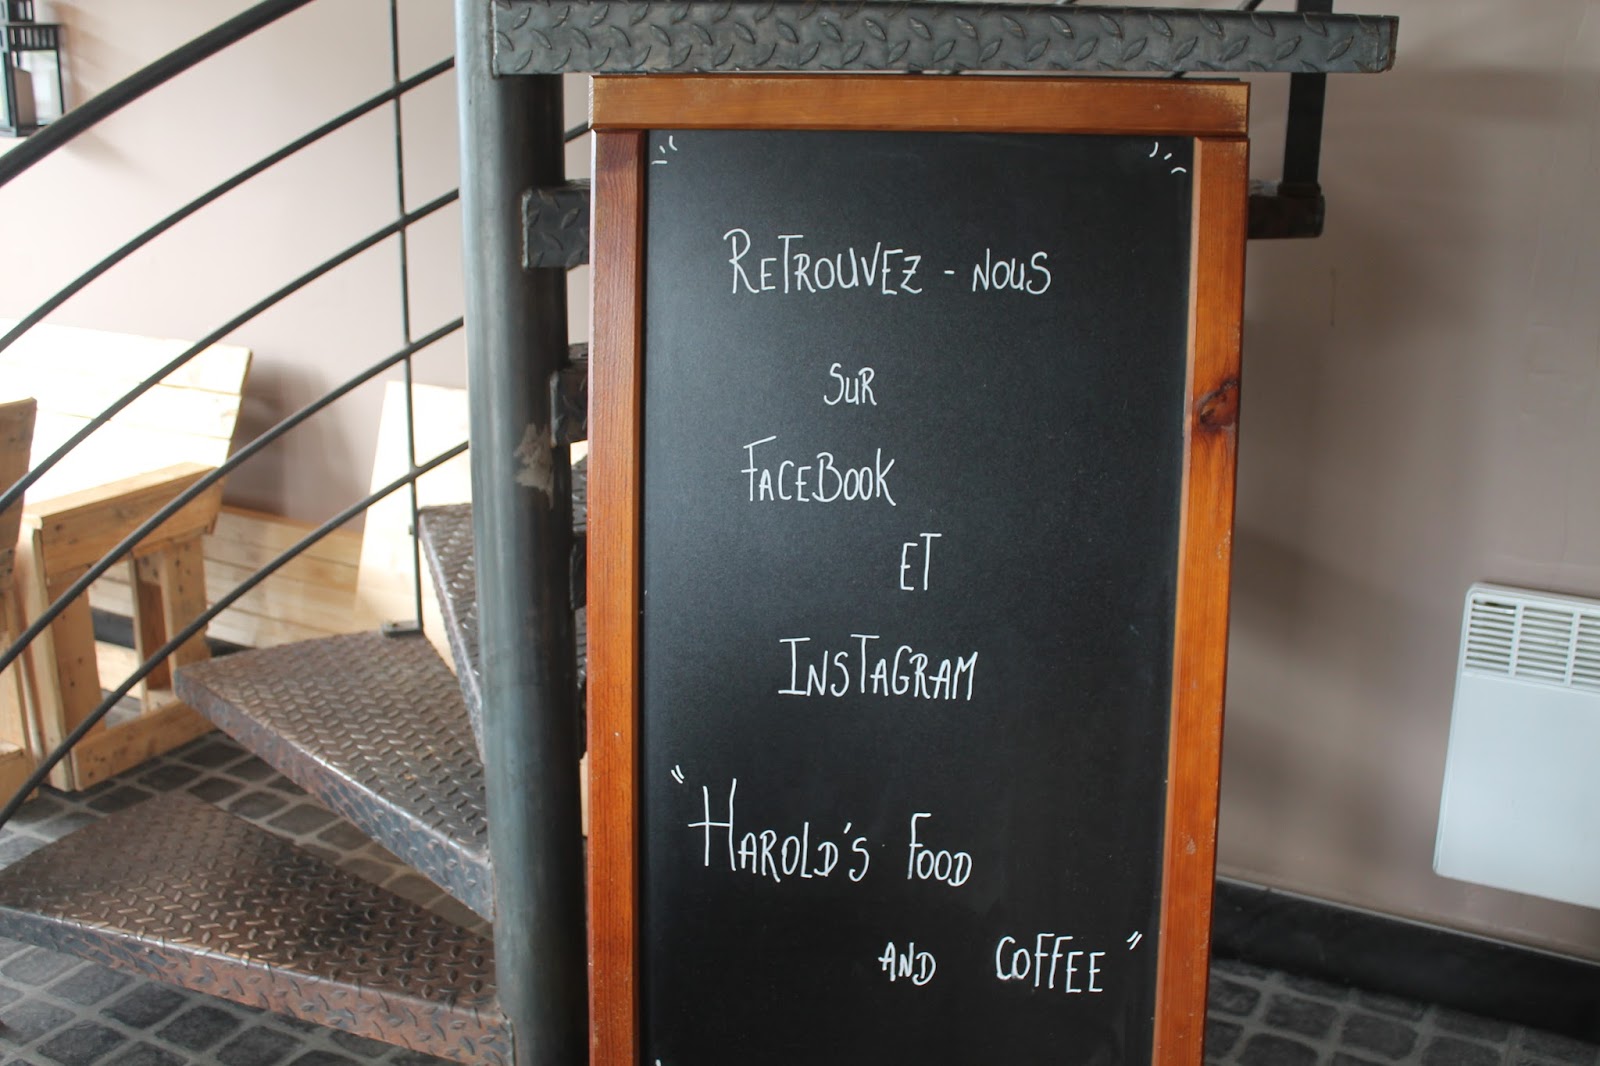 RETROUVEZ - NOUS
SUR
FACEBOOK
ET
INSTAGRAM
"HAROLD'S FOOD
AND COFFEE"